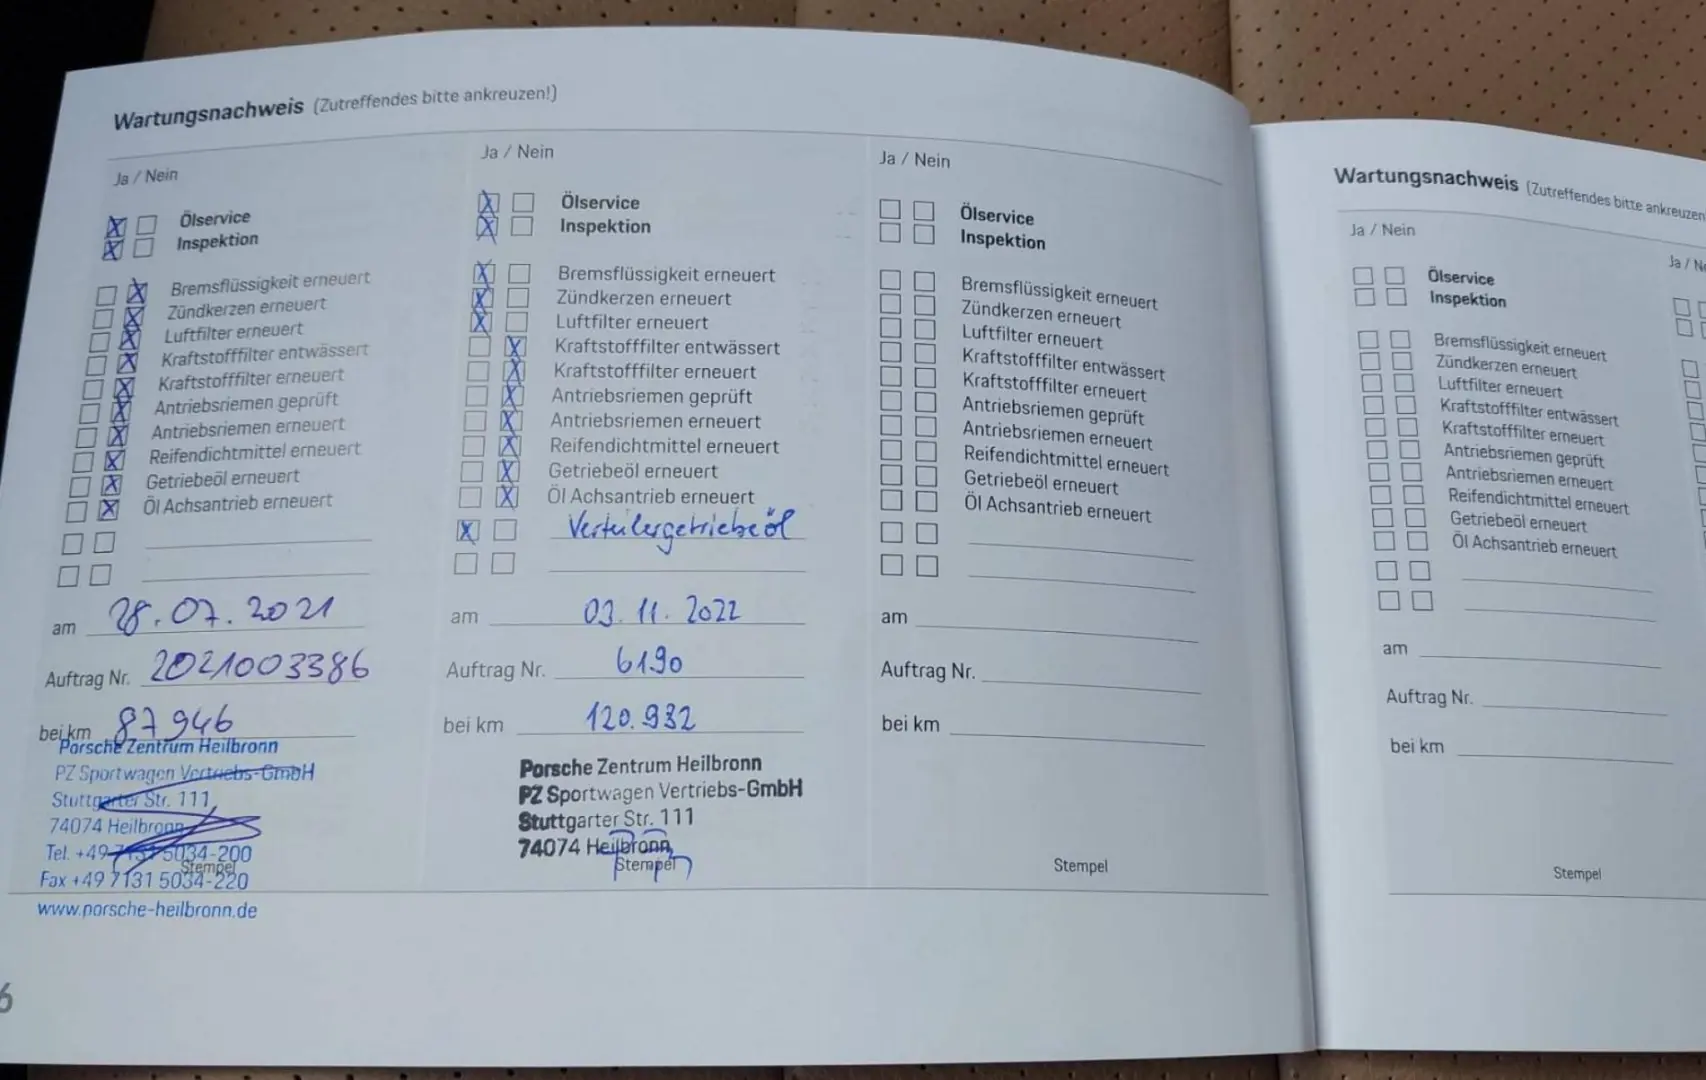 Wartungsnachweis (Zutreffendes bitte ankreuzen!)
Ja / Nein
Ölservice
Inspektion
Bremsflüssigkeit erneuert
Zündkerzen erneuert
Luftfilter erneuert
Kraftstofffilter entwässert
Kraftstofffilter erneuert
Antriebsriemen geprüft
Antriebsriemen erneuert
Reifendichtmittel erneuert
Getriebeöl erneuert
Öl Achsantrieb erneuert
am 28.07.2021
Auftrag Nr. 2021003386
bei km 87946
Porsche Zentrum Heilbronn
PZ Sportwagen Vertriebs-GmbH
Stuttgarter Str. 111
74074 Heilbronn
Tel. +49 7131 5034-200
Stempel
Fax +49 7131 5034-220
www.porsche-heilbronn.de
6
Ja / Nein
Ölservice
Inspektion
Bremsflüssigkeit erneuert
Zündkerzen erneuert
Luftfilter erneuert
Kraftstofffilter entwässert
Kraftstofffilter erneuert
Antriebsriemen geprüft
Antriebsriemen erneuert
Reifendichtmittel erneuert
Getriebeöl erneuert
Öl Achsantrieb erneuert
Verteilergetriebeöl
am 03.11.2022
Auftrag Nr. 6190
bei km 120.932
Porsche Zentrum Heilbronn
PZ Sportwagen Vertriebs-GmbH
Stuttgarter Str. 111
74074 Heilbronn
Stempel
Ja / Nein
Ölservice
Inspektion
Bremsflüssigkeit erneuert
Zündkerzen erneuert
Luftfilter erneuert
Kraftstofffilter entwässert
Kraftstofffilter erneuert
Antriebsriemen geprüft
Antriebsriemen erneuert
Reifendichtmittel erneuert
Getriebeöl erneuert
Öl Achsantrieb erneuert
am
Auftrag Nr.
bei km
Stempel
Wartungsnachweis (Zutreffendes bitte ankreuzen
Ja / Nein
Ölservice
Inspektion
Bremsflüssigkeit erneuert
Zündkerzen erneuert
Luftfilter erneuert
Kraftstofffilter entwässert
Kraftstofffilter erneuert
Antriebsriemen geprüft
Antriebsriemen erneuert
Reifendichtmittel erneuert
Getriebeöl erneuert
Öl Achsantrieb erneuert
am
Auftrag Nr.
bei km
Stempel
Ja / N